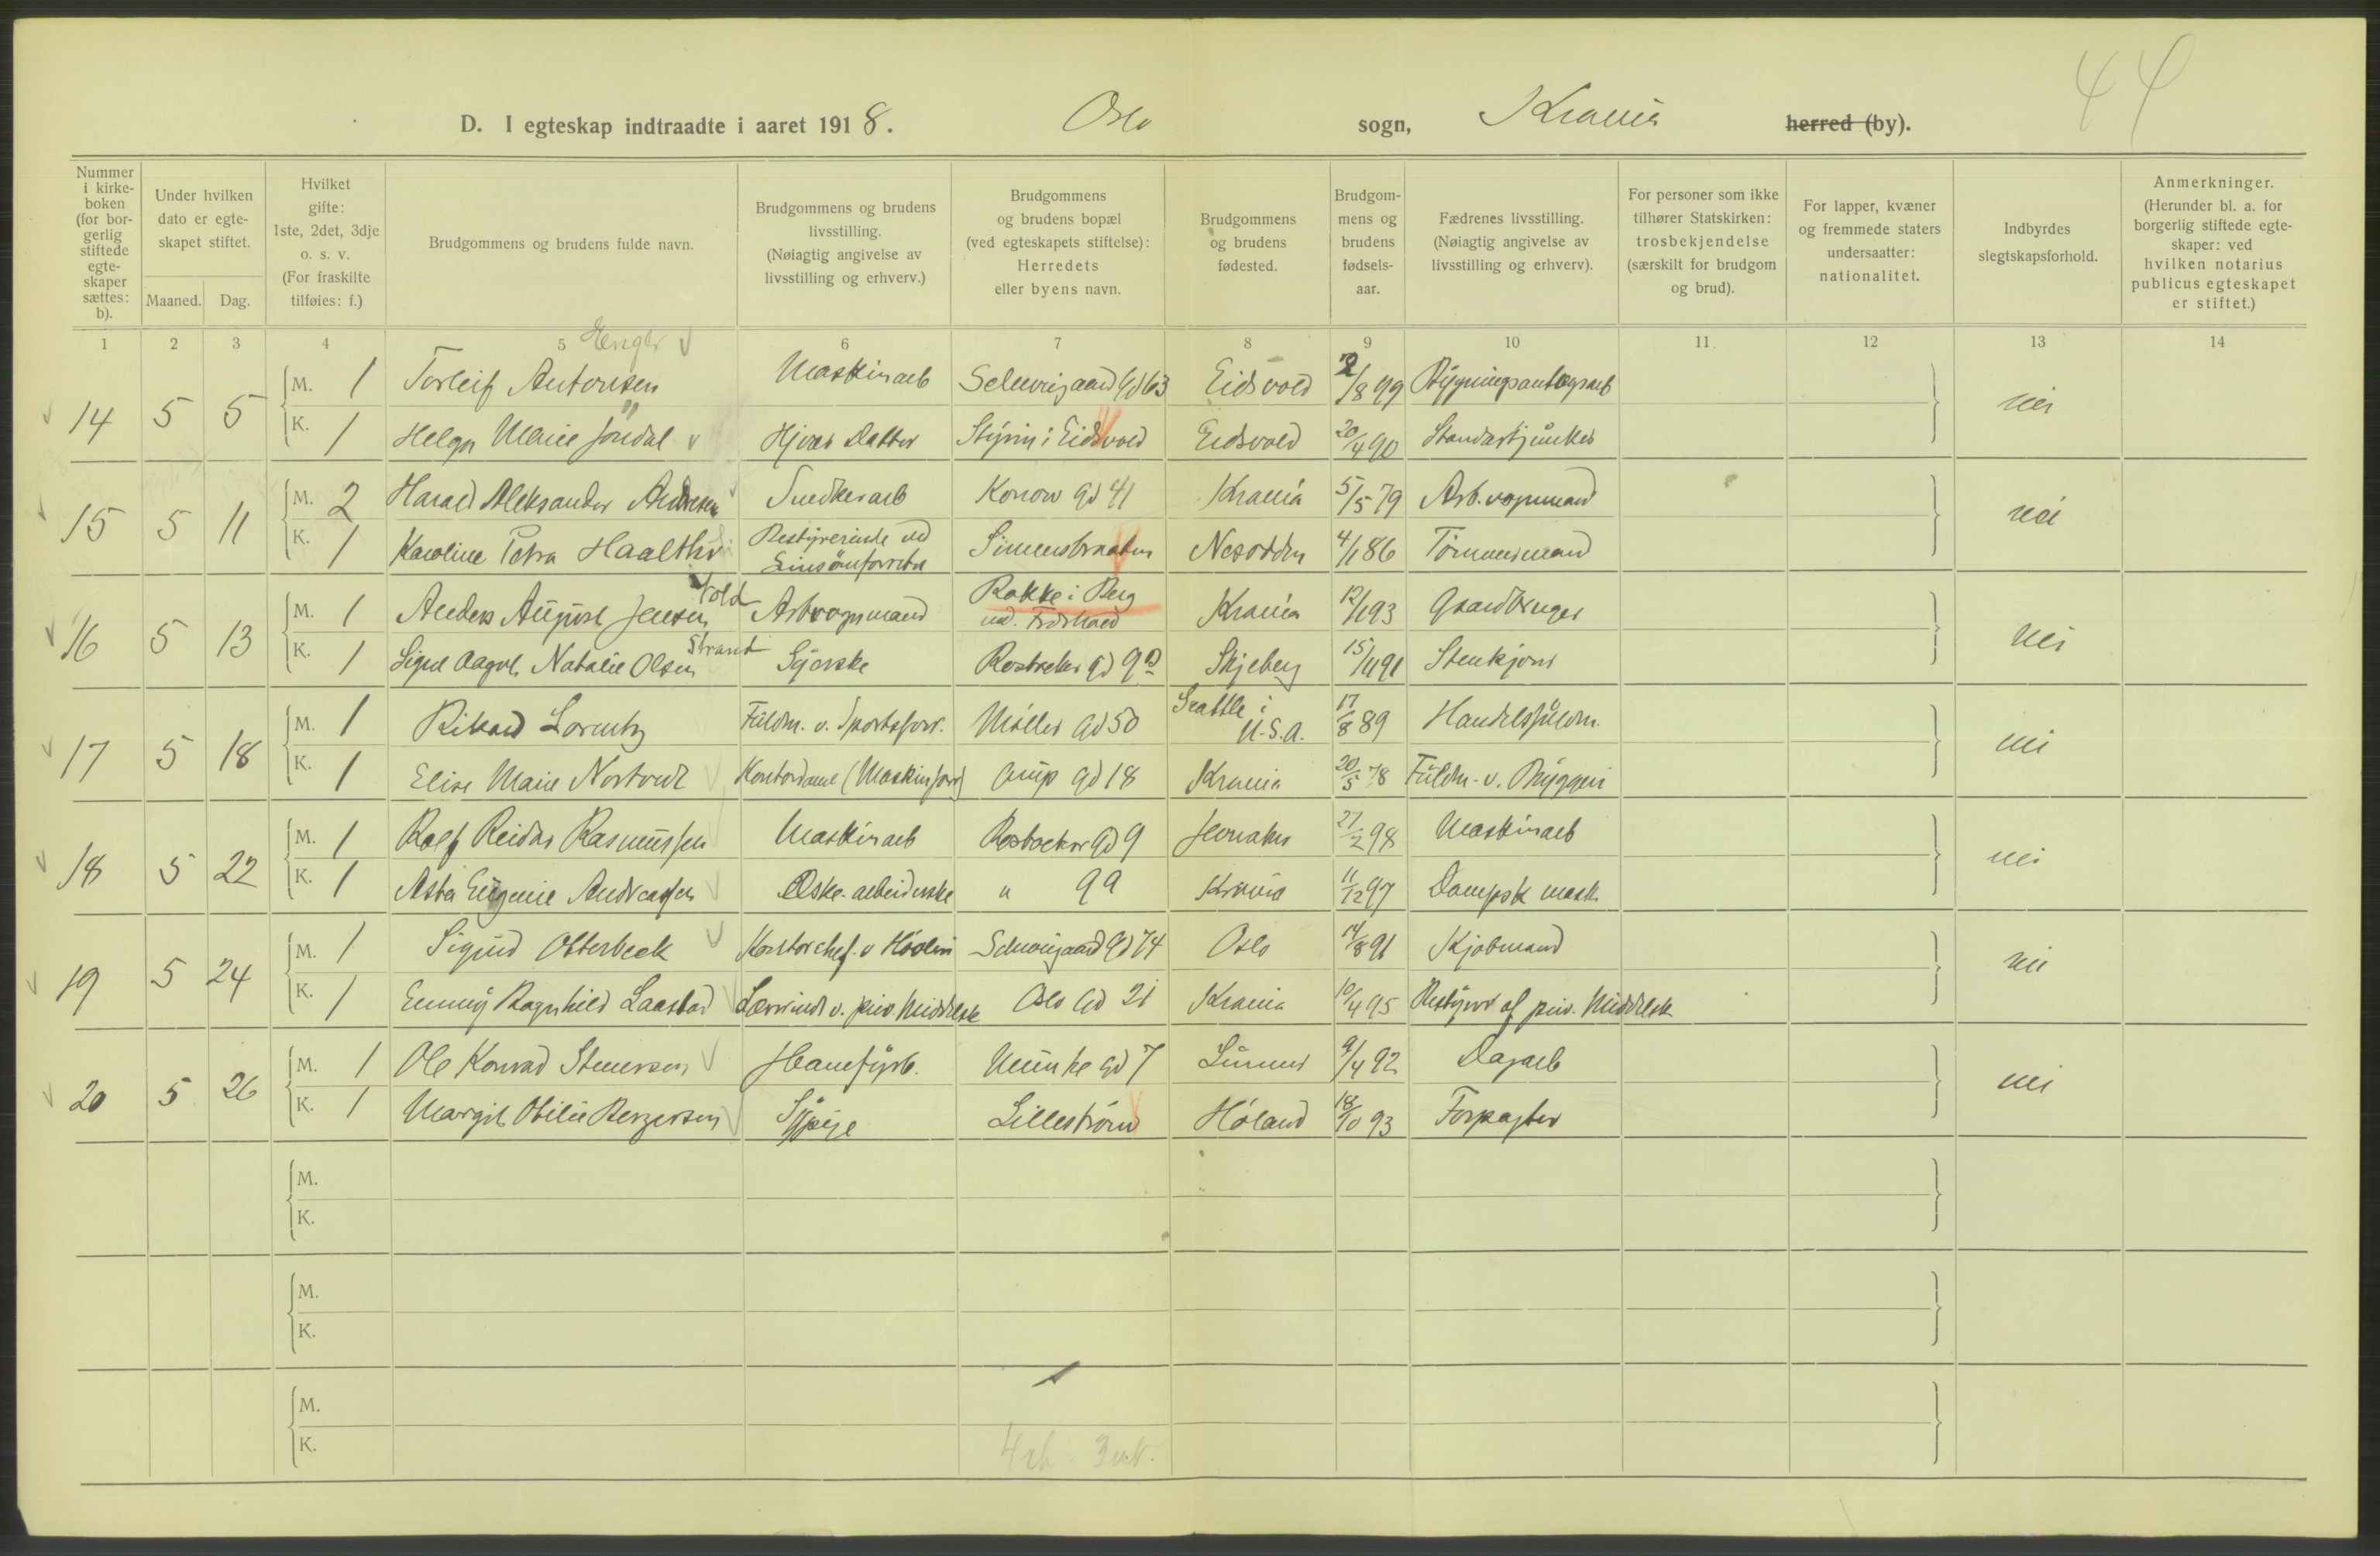 44
D. I egteskap indtraadte i aaret 1918. Oslo sogn, Krania herred (by).
Nummer i kirke-boken (for bor-gerlig stiftede egte-skaper sættes: b).
Under hvilken dato er egte-skapet stiftet.
Maaned. Dag.
Hvilket gifte: 1ste, 2det, 3dje o. s. v. (For fraskilte tilføies: f.)
Brudgommens og brudens fulde navn.
Brudgommens og brudens livsstilling. (Nøiagtig angivelse av livsstilling og erhverv.)
Brudgommens og brudens bopæl (ved egteskapets stiftelse): Herredets eller byens navn.
Brudgommens og brudens fødested.
Brudgom-mens og brudens fødsels-aar.
Fædrenes livsstilling. (Nøiagtig angivelse av livsstilling og erhverv).
For personer som ikke tilhører Statskirken: trosbekjendelse (særskilt for brudgom og brud).
For lapper, kvæner og fremmede staters undersaatter: nationalitet.
Indbyrdes slegtskapsforhold.
Anmerkninger. (Herunder bl. a. for borgerlig stiftede egte-skaper: ved hvilken notarius publicus egteskapet er stiftet.)
1 2 3 4 5 6 7 8 9 10 11. 12 13 14
14 5 5 M. 1 Torleif Antonsen Maskinarb Schweigaard Gd 63 Eidsvold /8 99 nei
K. 1 Helga Marie Jøndal Hjver Datter Styri i Eidsvold Eidsvold 20/4 90
15 5 11 M. 2 Harald Aleksander Andresen Snedkerarb Konow gd 41 Krania 5/5 79 Arb. vognmand nei
K. 1 Karoline Petra Bestyrerinde ved Simensbraaten Nesodden 4/1 86 Tømmermand
16 5 13 M. 1 Anders August Jensen Arb vognmand Rakke i Berg ved Fredrhald Krania 12/1 93 Gaardbruger nei
K. 1 Natalie Olsen Strand Syerske Rosteds gd 9 Skjeberg 15/11 91 Stenkjører
17 5 18 M. 1 Rikard Lorentz Fuldm. v. Sportsforr. Møller Gd 50 Seattle i U.S.A. 17/8 89 Handelsfuldm. nei
K. 1 Elise Marie Kontordame (Maskinforr) Arup gd 18 Krania 20/5 78 Fuldm. v. Bryggeri
18 5 22 M. 1 Rolf Reidar Rasmussen Maskinarb gd 9 27/2 98 Maskinarb nei
K. 1 Asta Eugenie Andreassen Æske-arbeiderske " 9 a Krania 11/12 97 Dampsk mask
19 5 24 M. 1 Sigurd Otterbeck Kontorchef v Høvleri Schweigaard Gd 74 Oslo 14/8 91 Kjøbmand nei
K. 1 Emmy Ragnhild Laastad Lærerinde v. priv. Middelsk Oslo Gd 21 Krania 10/4 95 Bestyrer af priv. Middelsk
20 5 26 M. 1 Ole Konrad Stenersen Kanefyrb. Munke gd 7 Lunner 9/4 92 Dagarb nei
K. 1 Margit Otilie Bergersen Sypige Lillestrøm Høland 18/10 93 Forpagter
M.
K.
M.
K.
M.
K.